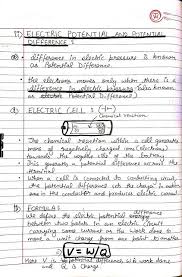 ELECTRIC POTENTIAL AND POTENTIAL
DIFFERENCE :
difference in electric pressure is known
as Potential Difference
the electrons moves only when there is a
difference in electric pressure
Potential Difference)
ELECTRIC CELL :
Chemical reaction
The chemical reaction within a cell generates
more of negatively charged ions (electrons)
towards the negative side of the battery
This generates a potential difference across the
terminal
When a cell is connected to conducting circuit,
the potential difference sets the charge in motion
and in the conductor and produces electric current
FORMULA :
We define the electric potential difference
between two points in an electric circuit
carrying some current as the work done to
move a unit charge from one point to another
V = W/Q
Here V is potential difference, W is work done
and Q is Charge